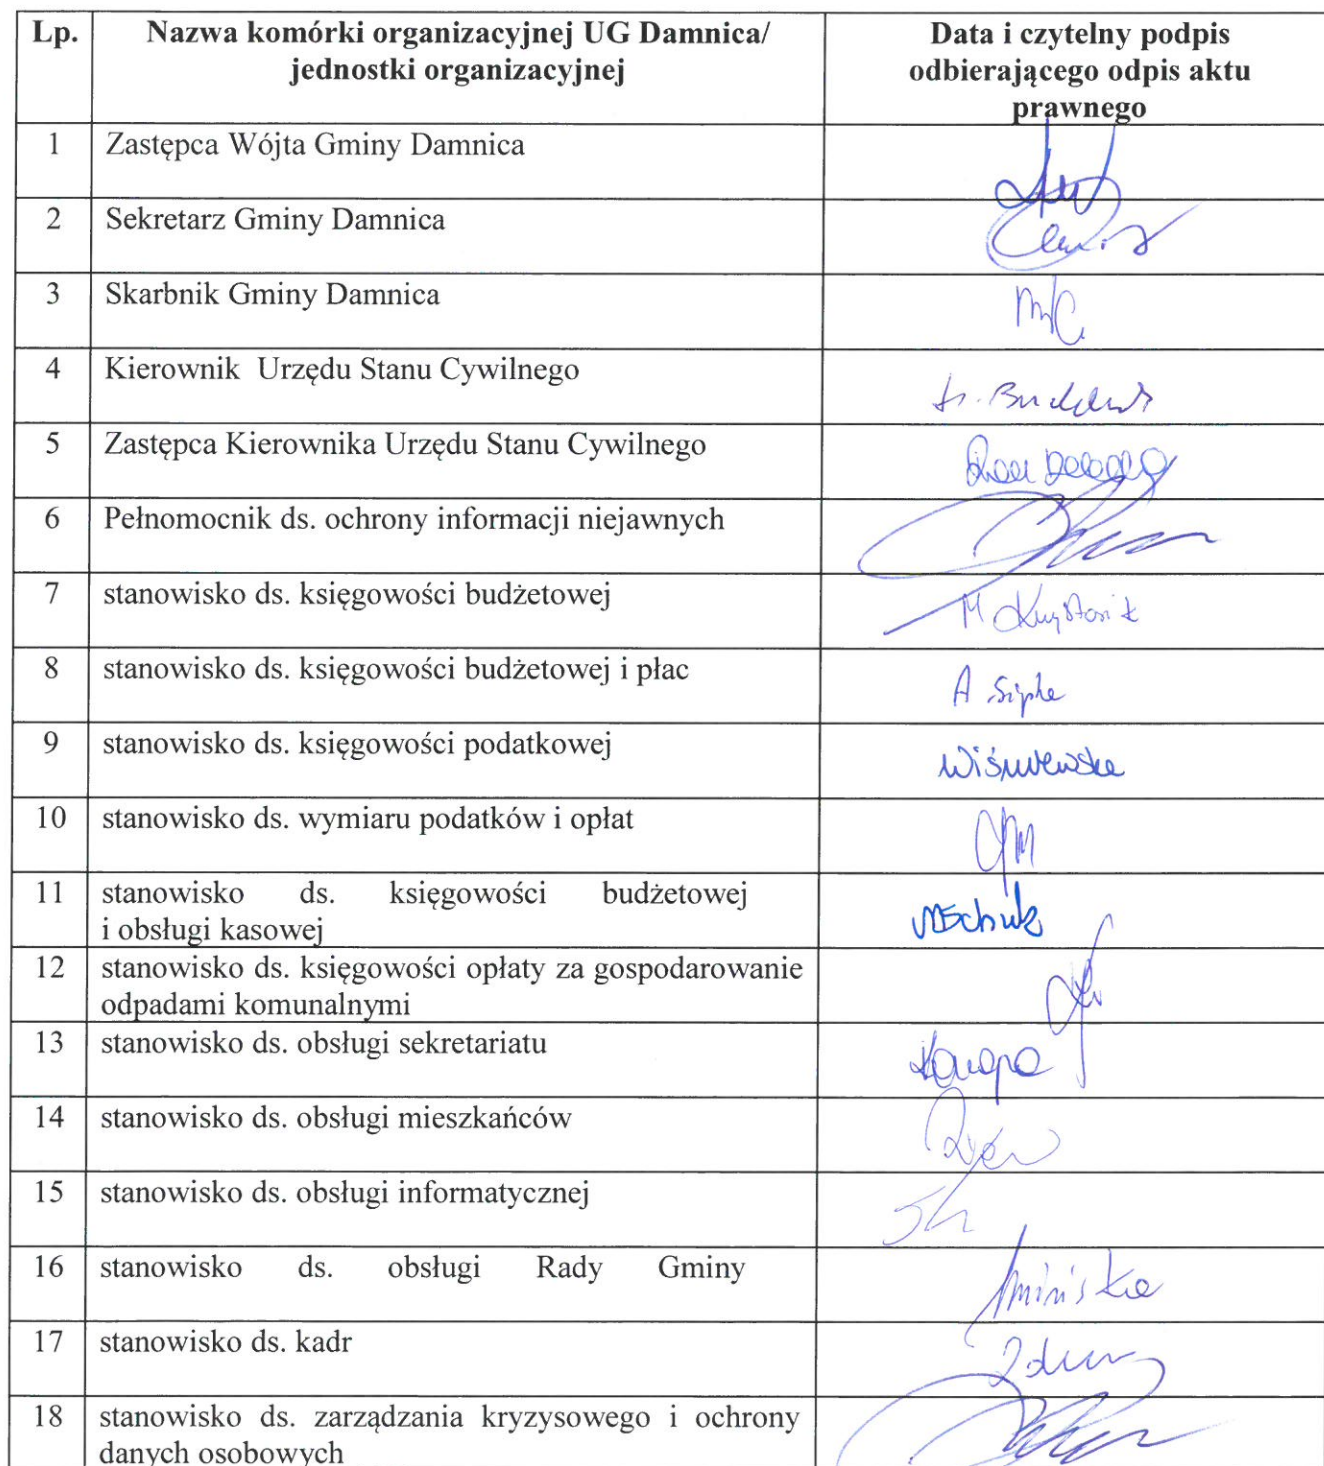 Lp. Nazwa komórki organizacyjnej UG Damnica/ Data i czytelny podpis
jednostki organizacyjnej odbierającego odpis aktu
prawnego
1 Zastępca Wójta Gminy Damnica
2 Sekretarz Gminy Damnica
3 Skarbnik Gminy Damnica
4 Kierownik Urzędu Stanu Cywilnego
5 Zastępca Kierownika Urzędu Stanu Cywilnego
6 Pełnomocnik ds. ochrony informacji niejawnych
7 stanowisko ds. księgowości budżetowej
8 stanowisko ds. księgowości budżetowej i płac
9 stanowisko ds. księgowości podatkowej Wiśniewska
10 stanowisko ds. wymiaru podatków i opłat
11 stanowisko ds. księgowości budżetowej
i obsługi kasowej
12 stanowisko ds. księgowości opłaty za gospodarowanie
odpadami komunalnymi
13 stanowisko ds. obsługi sekretariatu
14 stanowisko ds. obsługi mieszkańców
15 stanowisko ds. obsługi informatycznej
16 stanowisko ds. obsługi Rady Gminy
17 stanowisko ds. kadr
18 stanowisko ds. zarządzania kryzysowego i ochrony
danych osobowych